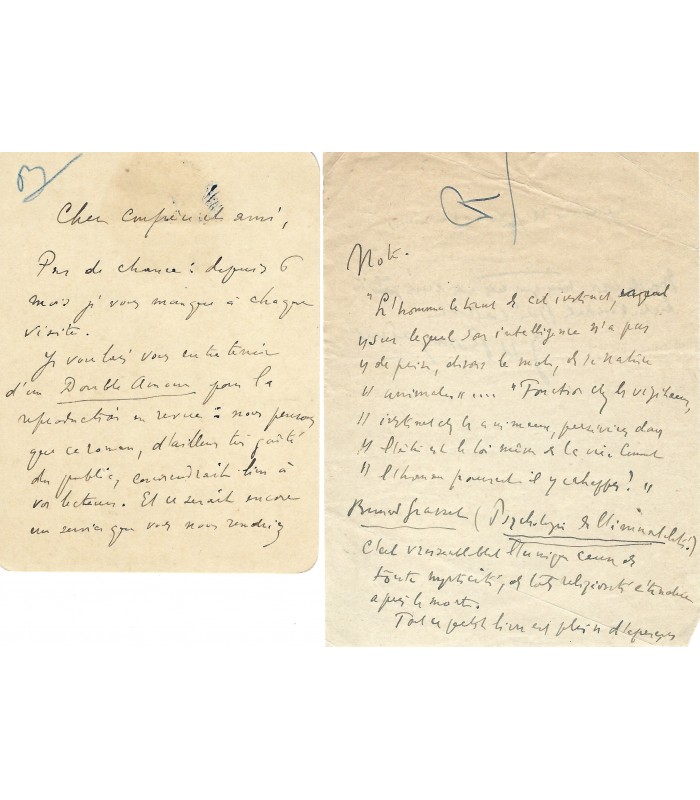 Cher confrère et ami,
Pas de chance : depuis 6
mois j'ai vous manque à chaque
visite.
Je voulais vous entretenir
d'un Double Amour pour la
reproduction en revue : nous pensons
que ce roman, d'ailleurs très goûté
du public, conviendrait bien à
vos lecteurs. Et ce serait encore
un service que vous nous rendriez
Note.
"L'homme le tient de cet instinct, auquel
" sur lequel son intelligence n'a pas
" de prise, disons le mot, de sa nature
" animale" .... "Fonction chez les végétaux,
" instinct chez les animaux, persévérer dans
" l'être est la loi même de la vie. Comment
" l'homme pourrait-il y échapper ? "
Bernard Grasset (Psychologie de l'immortalité)
C'est vraisemblablement l'unique cause de
toute mysticité, de toute religiosité étendue
après la mort.
Tout ce petit livre est plein d'aperçus